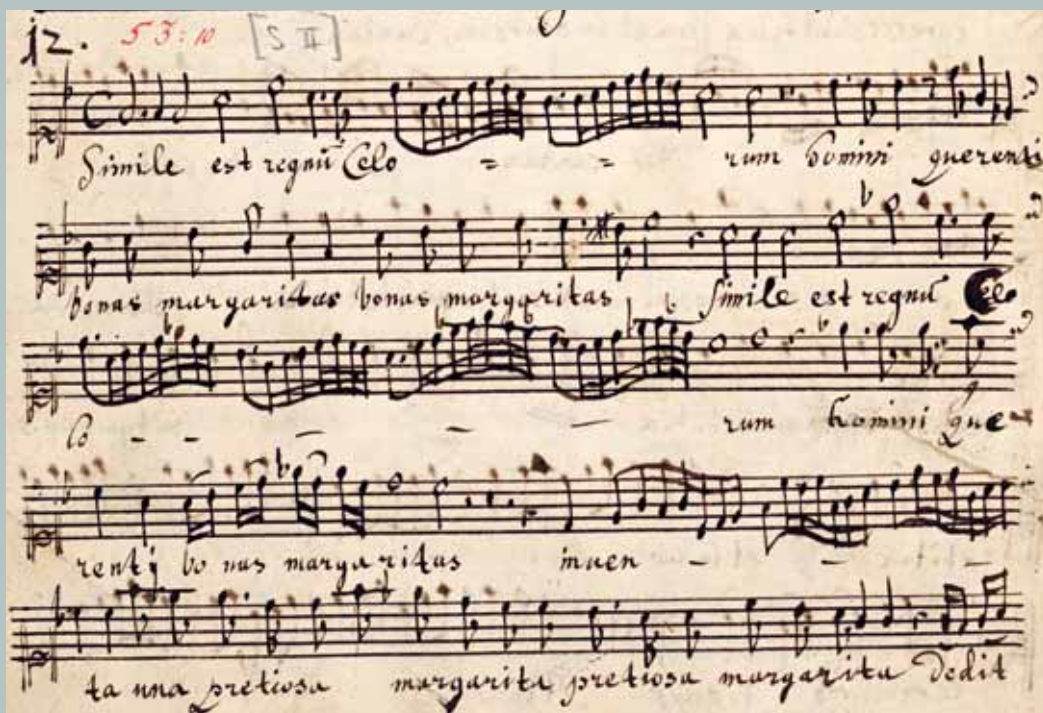 12. 53:10 [S II]
Simile est regnũ Celo = = rum homini querenti
bonas margaritas bonas margaritas Simile est regnũ Celo
lo - - - - - rum homini que
rentÿ bo nas margaritas inuen - - -
ta una pretiosa margarita pretiosa margarita dedit